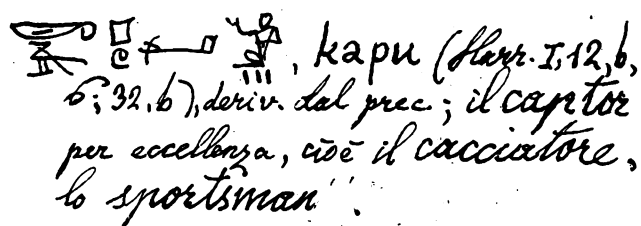 , kapu (Harr. I, 12, b,
6; 32, b), deriv. dal prec.; il captor
per eccellenza, cioè il cacciatore,
lo sportsman''.